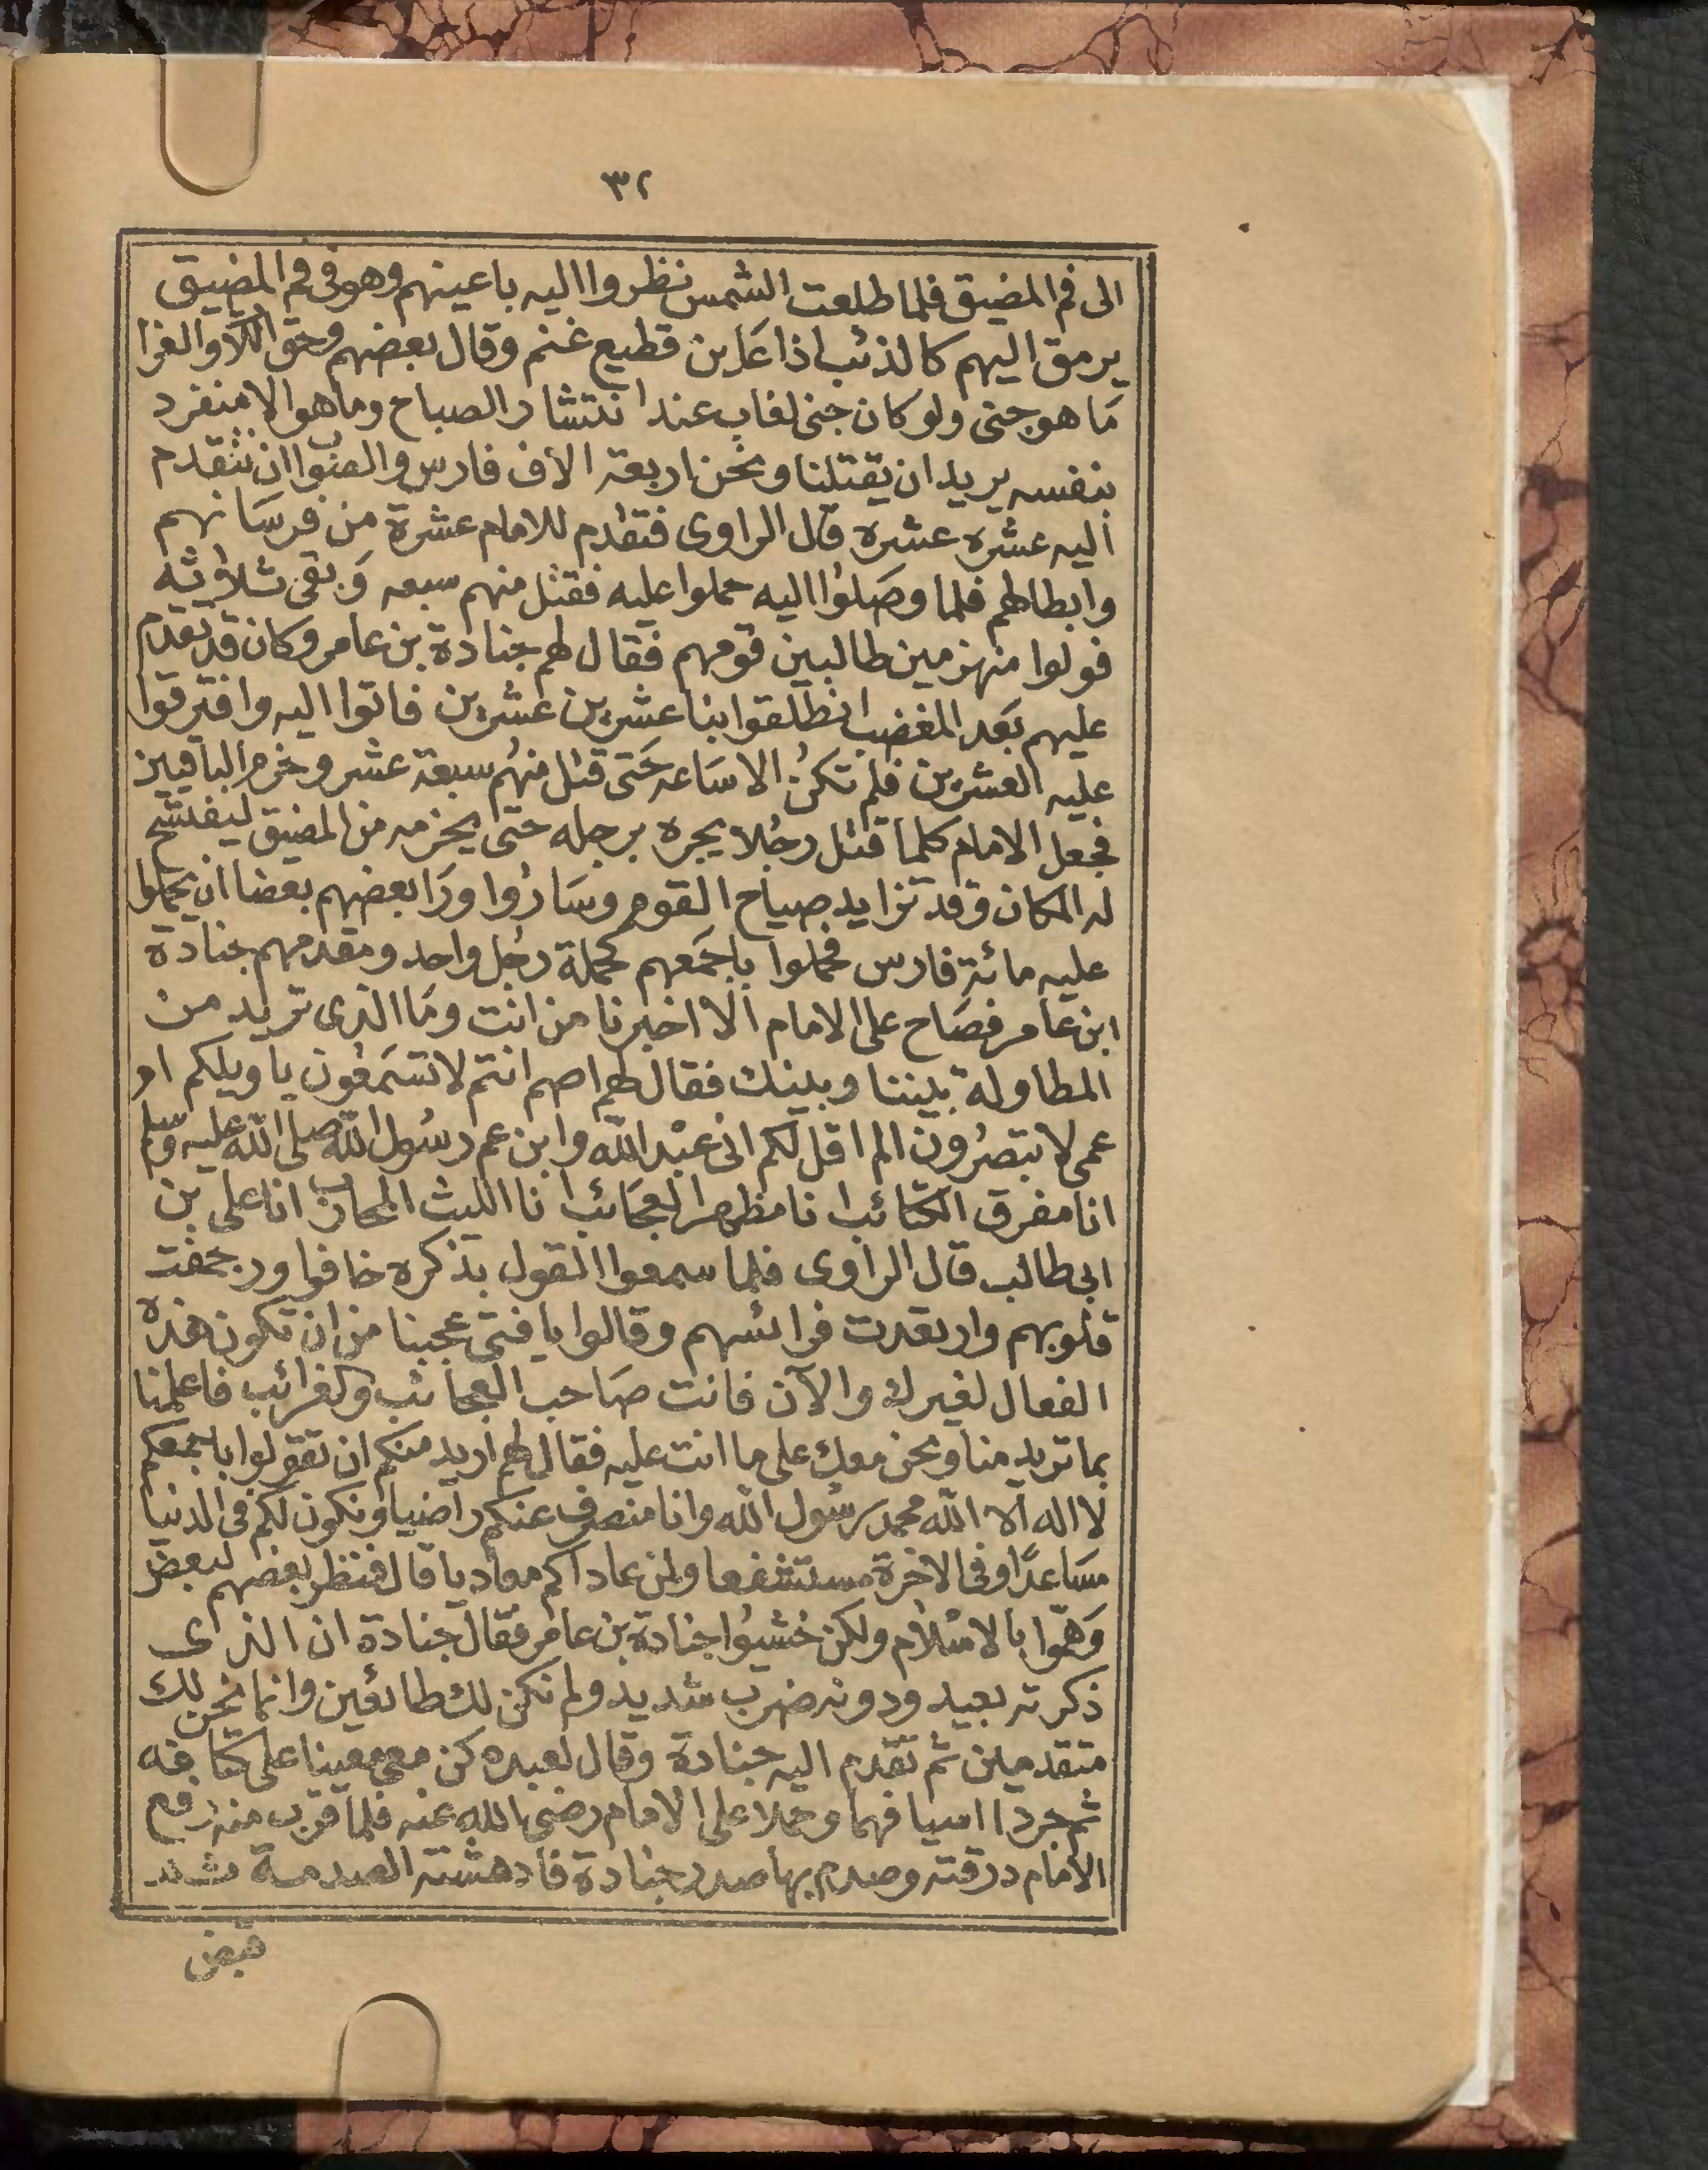 ٣٢
الى فم المضيق فلما طلعت الشمس نظروا اليه باعينهم وهو فى فم المضيق
يرمق اليهم كالذئب اذا عاين قطيع غنم وقال بعضهم وحق اللاة والعزا
مَا هو جنى ولو كان جنى لغاب عند انتشار الصباح وما هو الا منفرد
بنفسه يريد ان يقتلنا ونحن اربعة الاف فارس والصواب ان نتقدم
اليه عشره عشره قال الراوى فتقدم للامام عشرة من فرسَانهم
وابطالهم فلما وصَلوُا اليه حملوا عليه فقتل منهم سبعه وَبقى ثلاثه
فولوا منهزمين طالبين قومهم فقال لهم جنادة بن عامر وكان قد تقدم
عليهم بَعد المغضب انطلقوا بنا عشرين عشرين فاتوا اليه وافترقوا
عليه العشرين فلم تكنُ الا سَاعه حَتى قتل منهُم سبعة عشر وخرم الباقيين
فجعل الامام كلما قتل رجُلا يجره برجله حتى يخرجه من المضيق ليفسّح
له المكان وقد تزايد صياح القوم وسَارُوا ورَا بعضهم بعضا ان يحملوا
عليه مائة فارس فحملوا باجمَعهم كحملة رجُل واحد ومقدمهم جنادة
ابن عامر فصَاح على الامام الا اخبرنا من انت ومَا الذى تريد من
المطاولة بيننا وبينك فقال لهم اصم انتم لا تسَمعُون يا ويلكم ام
عمى لا تبصرُون الم اقل لكم انى عبْد الله وابن عم رسُول الله صلى الله عليه وسلم
انا مفرق الكتَائب انا مظهر العجَائب انا الليث المحارب انا على بن
ابى طالب قال الراوى فلما سمعوا القول بذكره خافوا ورجفت
قلوبهم وارتعدت فرائسهم وقالوا يا فتى عجبنا من ان تكون هذه
الفعال لغيرك والآن فانت صَاحب العجائب والغرائب فاعلمنا
بما تريد منا ونحن معك على ما انت عليه فقال لهم اريد منكم ان تقولوا باجمعكم
لا اله الا الله محمد رسُول الله وانا منصرف عنكم راضيا ونكون لكم فى الدنيا
مسَاعدًا وفى الاخرة مستشفعا ولمن عاداكم معاديا قال فنظر بعضهم لبعض
وَهمّوا بالاسْلام ولكن خشيوُا جنادة بن عامر فقال جنادة ان الذى
ذكرته بعيد ودونه ضرب شديد ولم نكن لك طائعين وانما نحن لك
متقدمين ثم تقدم اليه جنادة وقال لعبده كن معى معينا على كتافه
ثم جردا اسيافهما وحملا على الامام رضى الله عنه فلما قرب منه رفع
الامام درقته وصدم بها صدر جنادة فادهشته الصدمة
قبض